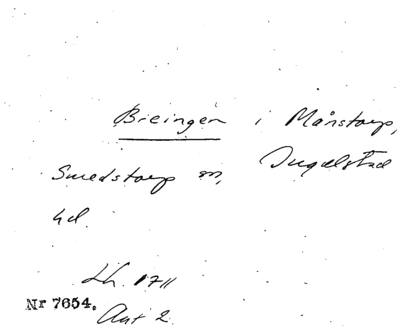 Breingen i Månstorp,
Smedstorp sn, Ingelstad
hd.
Lh. 1711
Nr 7654. Akt 2